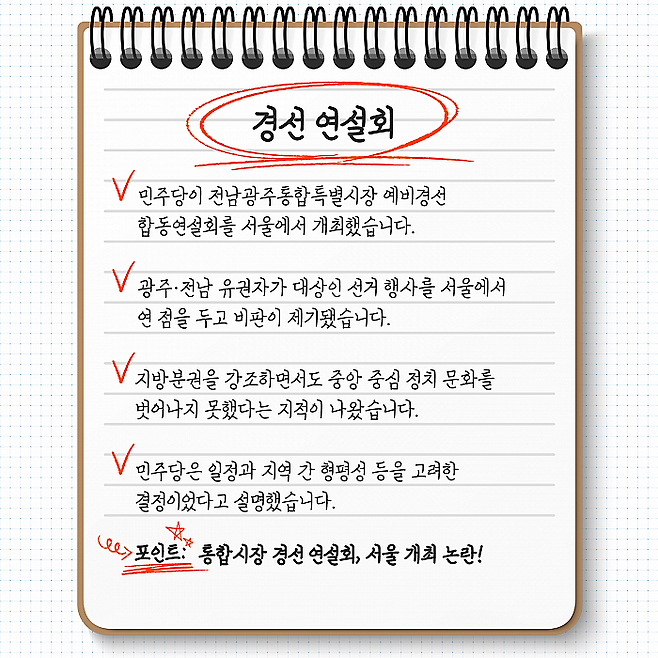 경선 연설회
민주당이 전남광주통합특별시장 예비경선
합동연설회를 서울에서 개최했습니다.
광주·전남 유권자가 대상인 선거 행사를 서울에서
연 점을 두고 비판이 제기됐습니다.
지방분권을 강조하면서도 중앙 중심 정치 문화를
벗어나지 못했다는 지적이 나왔습니다.
민주당은 일정과 지역 간 형평성 등을 고려한
결정이었다고 설명했습니다.
포인트: 통합시장 경선 연설회, 서울 개최 논란!